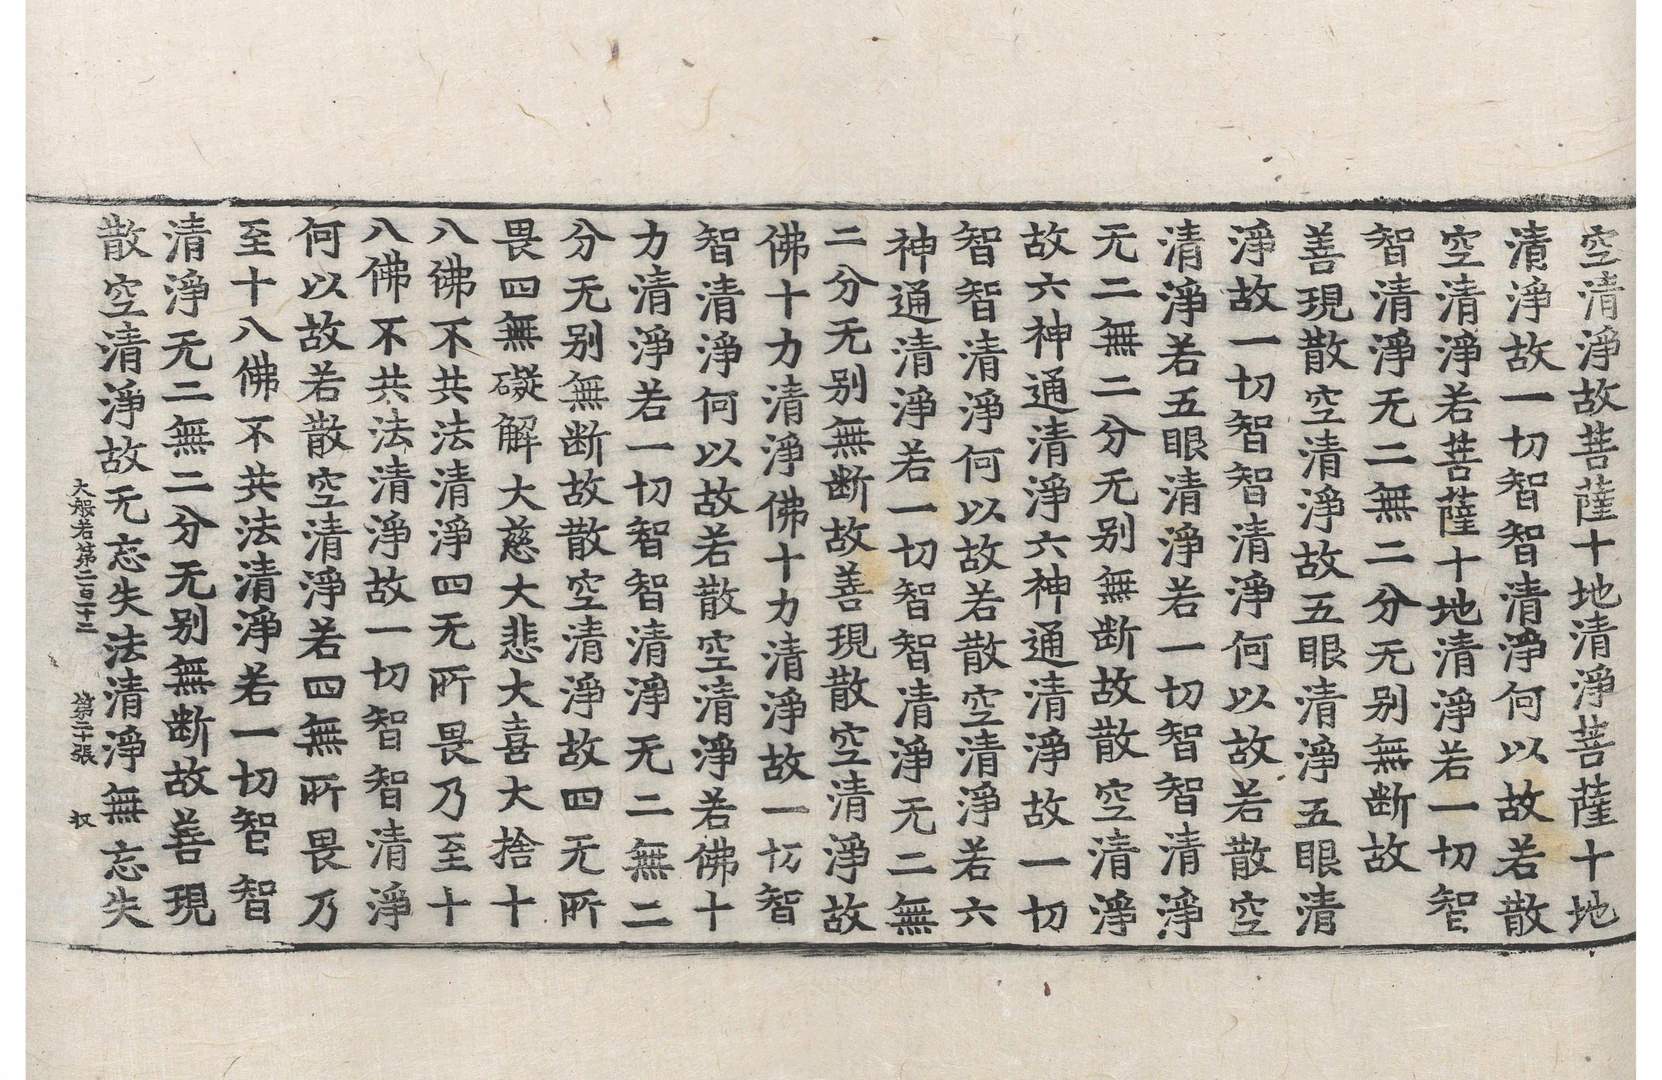 空清淨故菩薩十地清淨菩薩十地
清淨故一切智智清淨何以故若散
空清淨若菩薩十地清淨若一切智
智清淨无二無二分无别無断故
善現散空清淨故五眼清淨五眼清
淨故一切智智清淨何以故若散空
清淨若五眼清淨若一切智智清淨
无二無二分无别無断故散空清淨
故六神通清淨六神通清淨故一切
智智清淨何以故若散空清淨若六
神通清淨若一切智智清淨无二無
二分无别無断故善現散空清淨故
佛十力清淨佛十力清淨故一切智
智清淨何以故若散空清淨若佛十
力清淨若一切智智清淨无二無二
分无别無断故散空清淨故四无所
畏四無礙解大慈大悲大喜大捨十
八佛不共法清淨四无所畏乃至十
八佛不共法清淨故一切智智清淨
何以故若散空清淨若四無所畏乃
至十八佛不共法清淨若一切智智
清淨无二無二分无别無断故善現
散空清淨故无忘失法清淨無忘失
大般若第二百二十二 第二十張 杈